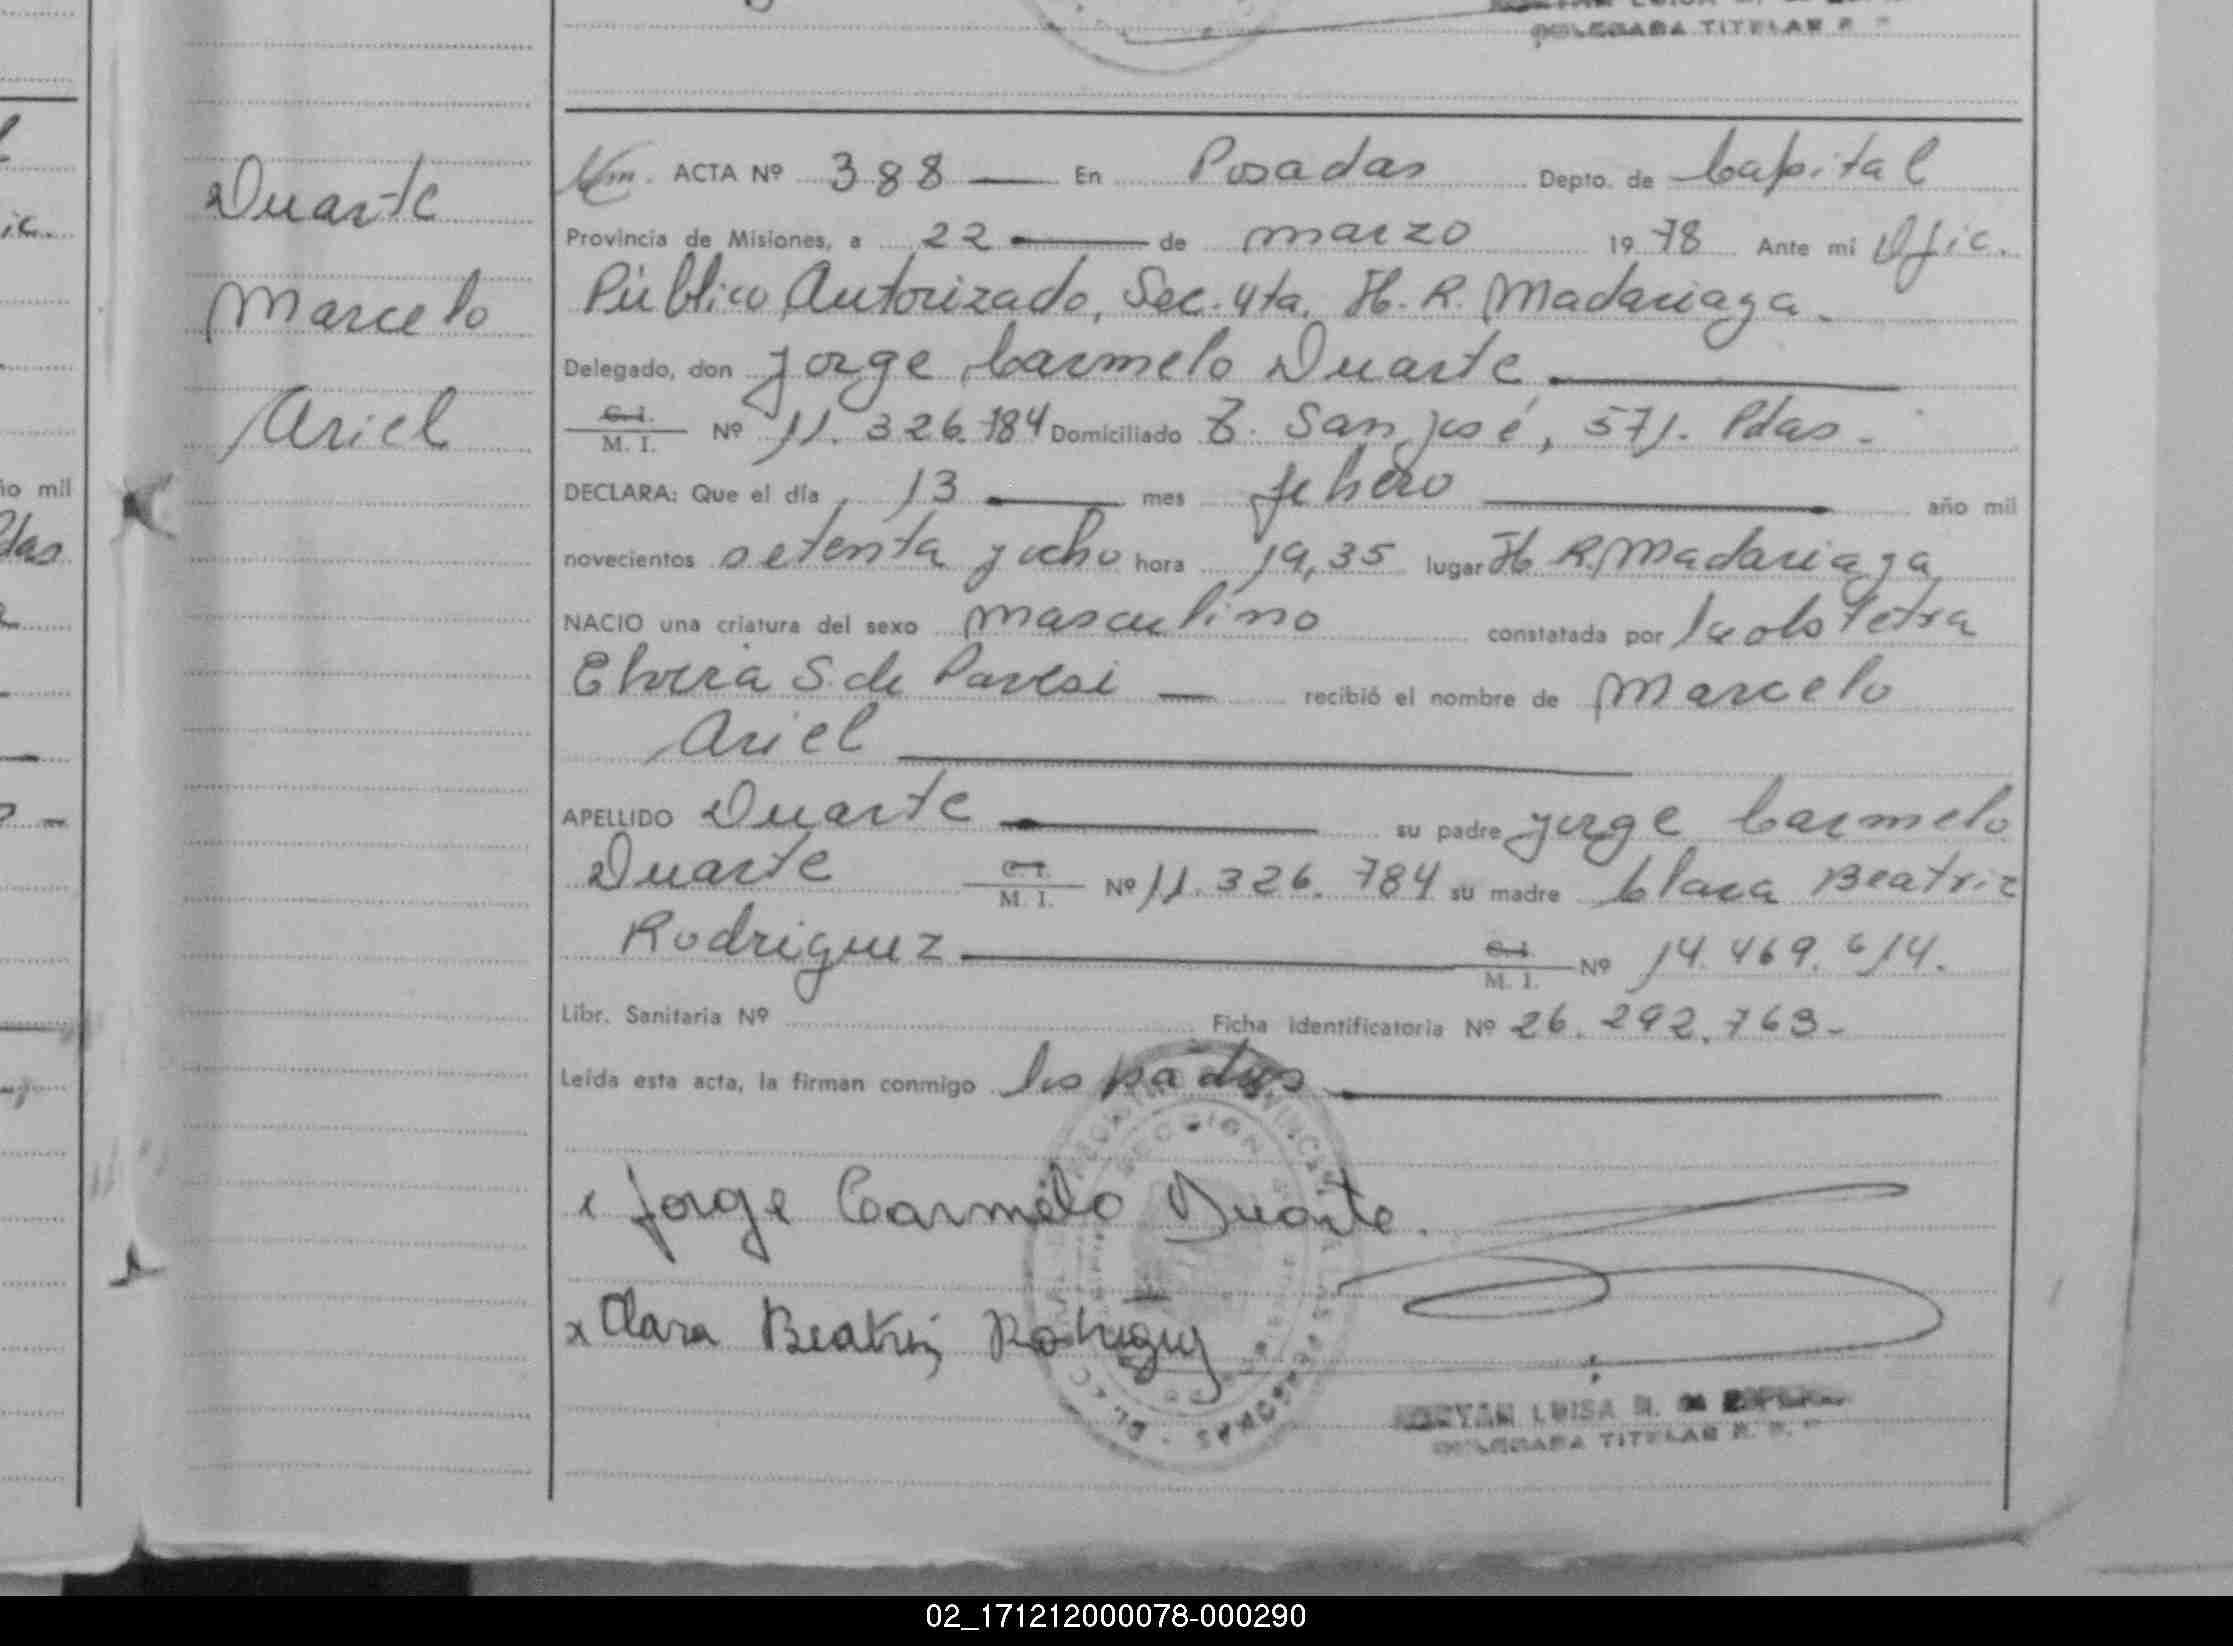 DELEGADA TITULAR R. P.
Duarte
Marcelo
Ariel
ACTA Nº 388 En Posadas Depto. de Capital
Provincia de Misiones, a 22 de marzo 1978 Ante mi Ofic.
Público Autorizado, Sec. 4ta. H. R. Madariaga.
Delegado, don Jorge Carmelo Duarte
C. I.
M. I. Nº 11.326.784 Domiciliado San José, 571. Pdas.
DECLARA: Que el día 13 mes febrero año mil
novecientos setenta y ocho hora 19,35 lugar H. R. Madariaga
NACIO una criatura del sexo masculino constatada por la obstetra
Elvira S. de Pavesi recibió el nombre de Marcelo
Ariel
APELLIDO Duarte su padre Jorge Carmelo
Duarte C. I. M. I. Nº 11.326.784 su madre Clara Beatriz
Rodriguez C. I. M. I. Nº 14.469.614.
Libr. Sanitaria Nº Ficha Identificatoria Nº 26.292.763-
Leída esta acta, la firman conmigo los padres
Jorge Carmelo Duarte.
x Clara Beatriz Rodriguez
LUISA
DELEGADA TITULAR R. P.
ño mil
das
02_171212000078-000290